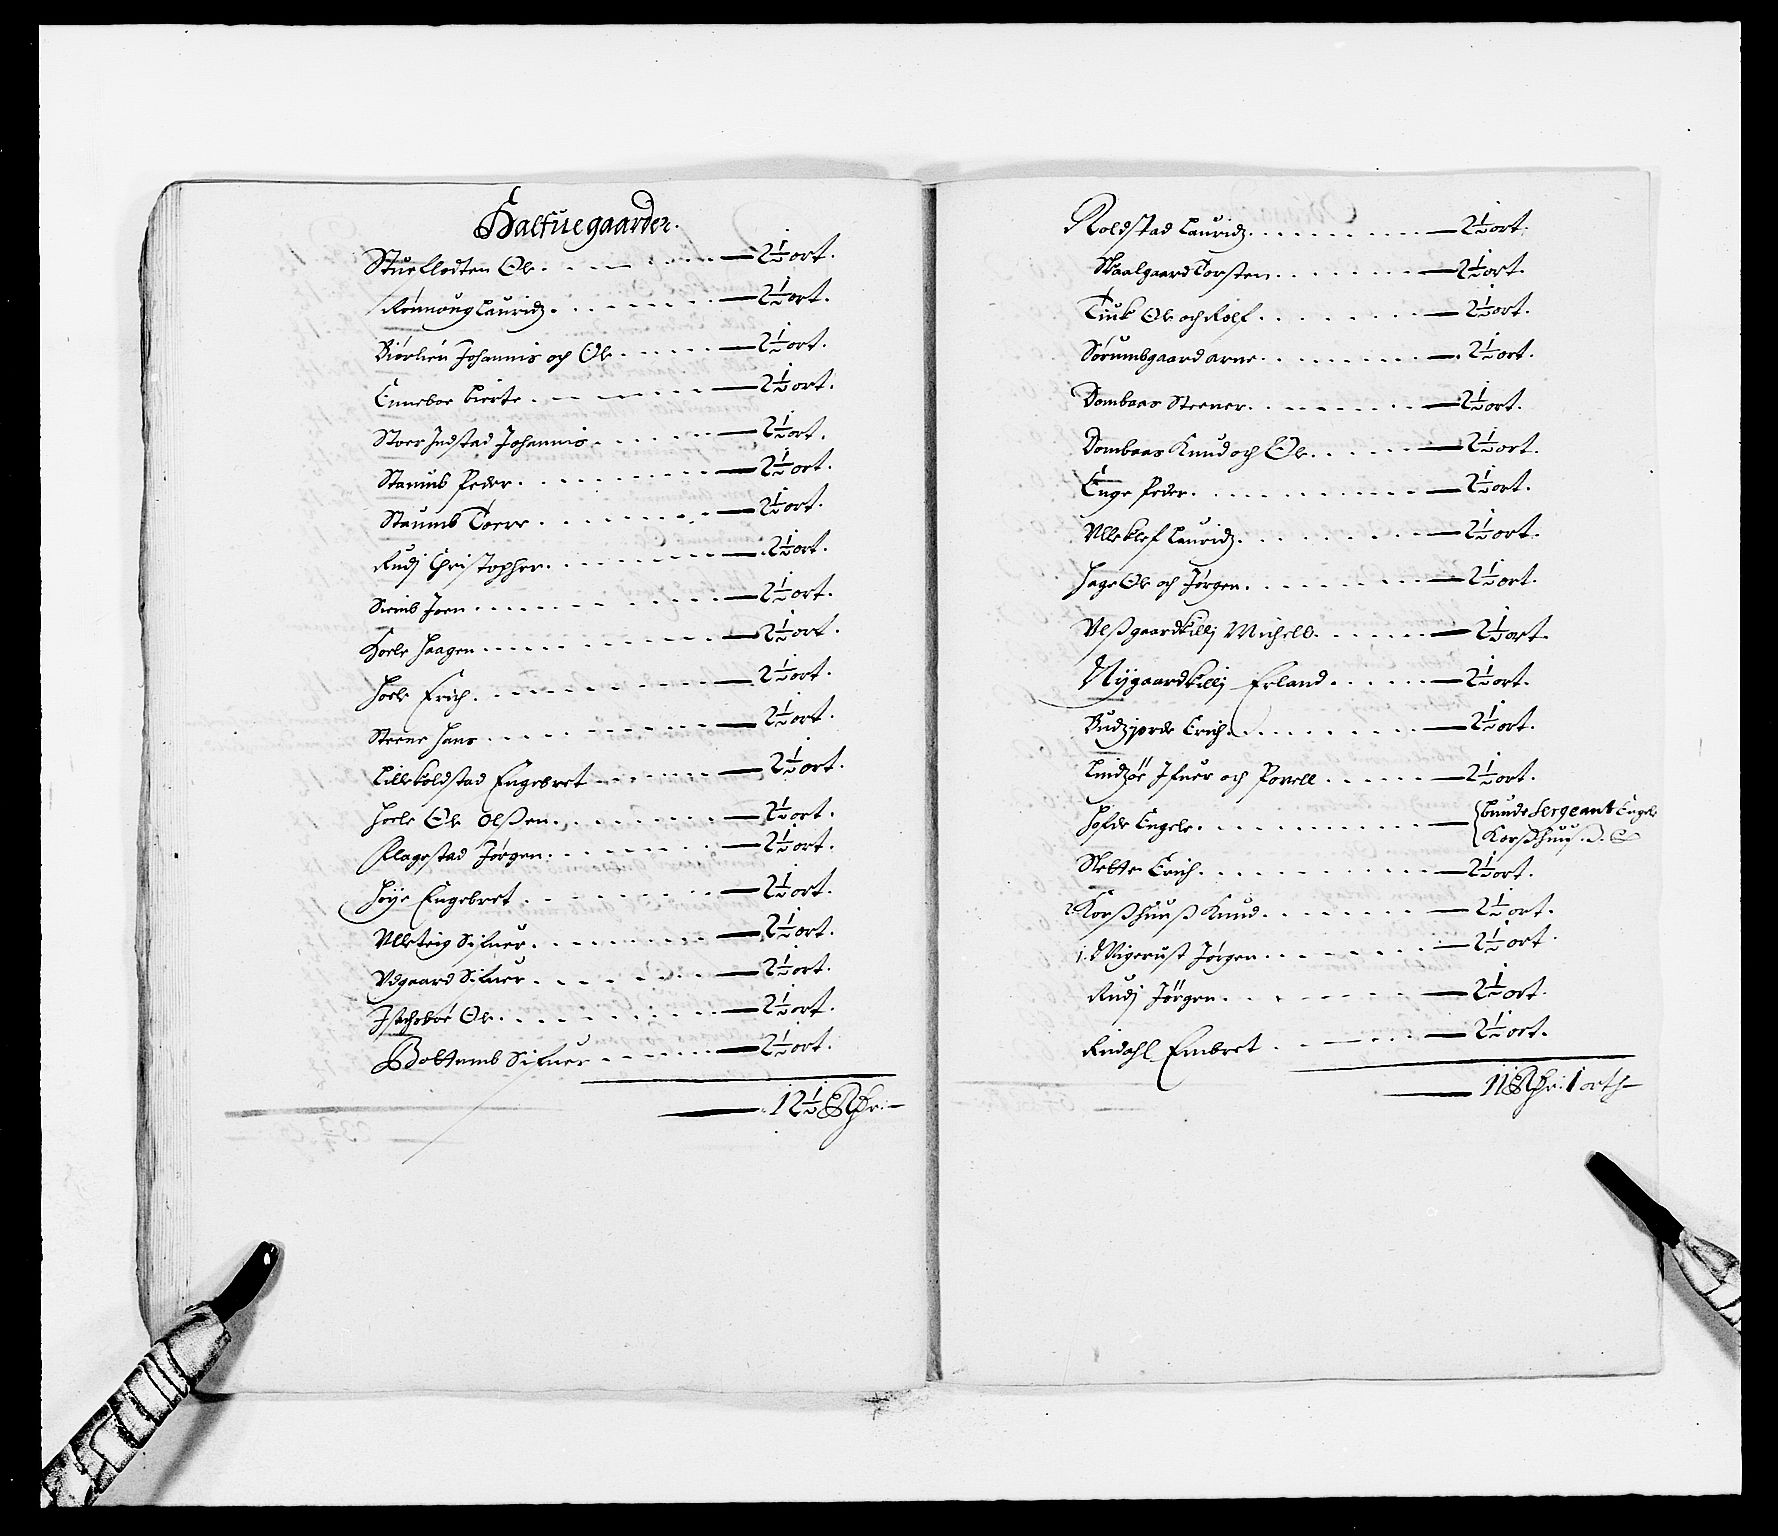 Halfuegaarder.
Stueflodten Ole. 2½ ort.
Rönnoug Lauridz. 2½ ort.
Biörlien Johannis och Ole. 2½ ort.
Enneboe Lierte. 2½ ort.
Stoer Jndstad Johannis. 2½ ort.
Staumb Peder. 2½ ort.
Staumb Torre. 2½ ort.
Rudj Christopher. 2½ ort.
Siemb Joen. 2½ ort.
Hoele Haagen. 2½ ort.
Hoele Erich. 2½ ort.
Steene Hans. 2½ ort.
Lille Koldstad Engebret. 2½ ort.
Hoele Ole Olßen. 2½ ort.
Klagestad Jörgen. 2½ ort.
Höÿe Engebret. 2½ ort.
Ulleteig Sifuer. 2½ ort.
Udgaard Sifuer. 2½ ort.
Ole. 2½ ort.
Bottumb Sifuer. 2½ ort.
12½ Rdr:
Koldstad Lauridz. 2½ ort.
Skaalgaard Torsten. 2½ ort.
Tiuk Ole och Rolf. 2½ ort.
Sörumbgaard arne. 2½ ort.
Dombaas Steener. 2½ ort.
Dombaas Knud och Ole. 2½ ort.
Enge Peder. 2½ ort.
Ulleklef Lauridz. 2½ ort.
Hage Ole och Jörgen. 2½ ort.
Ulßgaardkillj Michell. 2½ ort.
Nÿgaardkillj Erland. 2½ ort.
Budzjorde Erich. 2½ ort.
Lindzöe Jfuer och Povell. 2½ ort.
Hofde Engele. Lunde Sergeant Engele
Korßhuuß
Slette Erich. 2½ ort.
2 Korßhuuß Knud. 2½ ort.
1. Vigerust Jörgen. 2½ ort.
Rudj Jörgen. 2½ ort.
Rindahl Embret. 2½ ort.
11 Rdr: 1 orth